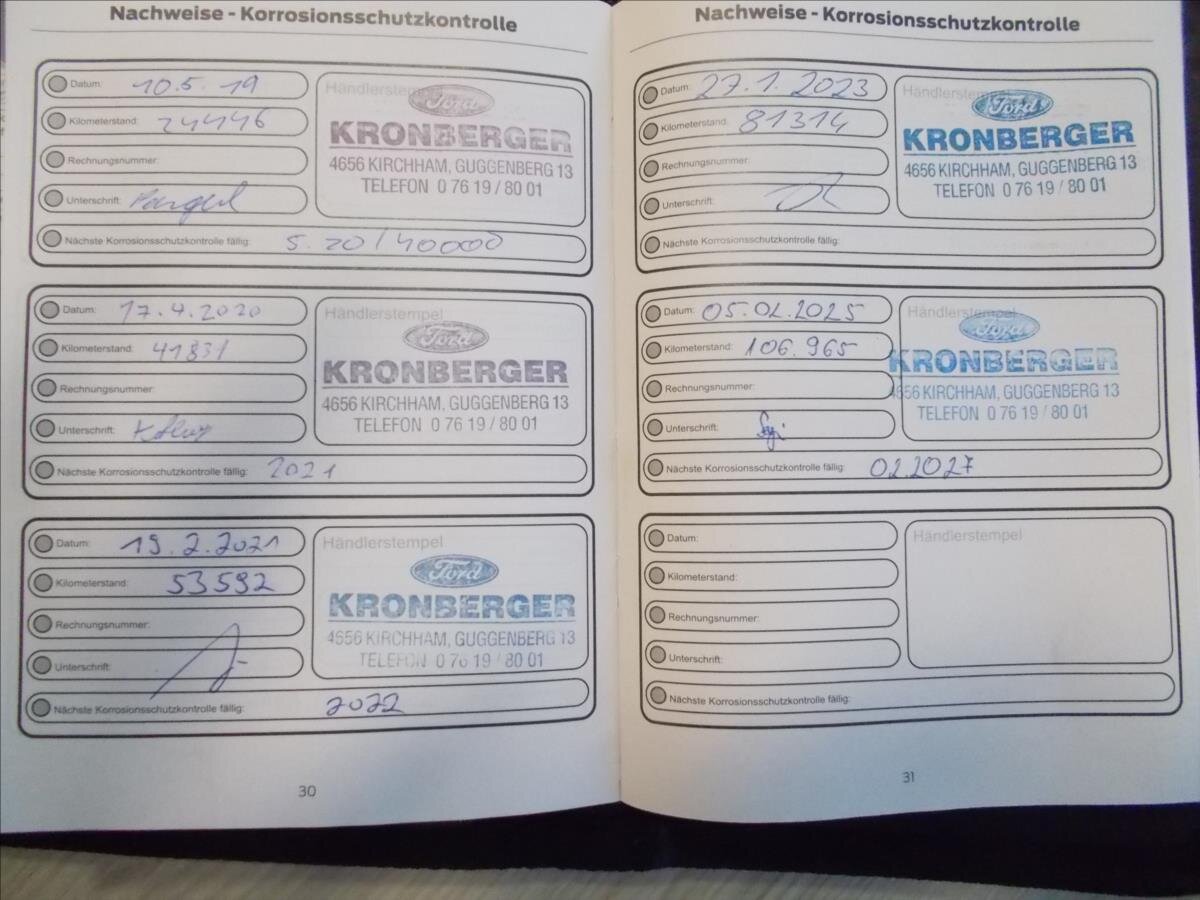 Nachweise - Korrosionsschutzkontrolle
Datum: 10.5.19
Kilometerstand: 24446
Rechnungsnummer:
Unterschrift:
Händlerstempel
Ford
KRONBERGER
4656 KIRCHHAM, GUGGENBERG 13
TELEFON 0 76 19 / 80 01
Nächste Korrosionsschutzkontrolle fällig: 5.20/40000
Datum: 17.4.2020
Kilometerstand: 41831
Rechnungsnummer:
Unterschrift:
Händlerstempel
Ford
KRONBERGER
4656 KIRCHHAM, GUGGENBERG 13
TELEFON 0 76 19 / 80 01
Nächste Korrosionsschutzkontrolle fällig: 2021
Datum: 19.2.2021
Kilometerstand: 53592
Rechnungsnummer:
Unterschrift:
Händlerstempel
Ford
KRONBERGER
4656 KIRCHHAM, GUGGENBERG 13
TELEFON 0 76 19 / 80 01
Nächste Korrosionsschutzkontrolle fällig: 2022
30
Nachweise - Korrosionsschutzkontrolle
Datum: 27.1.2023
Kilometerstand: 81314
Rechnungsnummer:
Unterschrift:
Händlerstempel
Ford
KRONBERGER
4656 KIRCHHAM, GUGGENBERG 13
TELEFON 0 76 19 / 80 01
Nächste Korrosionsschutzkontrolle fällig:
Datum: 05.02.2025
Kilometerstand: 106.965
Rechnungsnummer:
Unterschrift:
Händlerstempel
Ford
KRONBERGER
4656 KIRCHHAM, GUGGENBERG 13
TELEFON 0 76 19 / 80 01
Nächste Korrosionsschutzkontrolle fällig: 02.2027
Datum:
Kilometerstand:
Rechnungsnummer:
Unterschrift:
Händlerstempel
Nächste Korrosionsschutzkontrolle fällig:
31